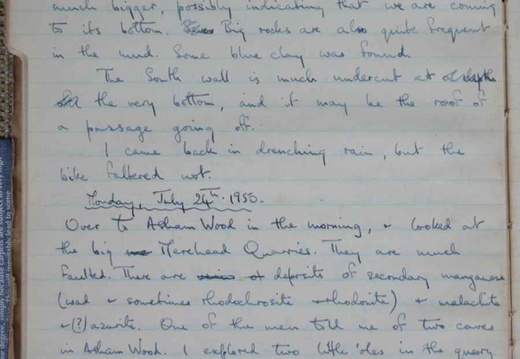 much bigger, possibly indicating that we are coming
to its bottom. Big rocks are also quite frequent
in the mud. Some blue clay was found.
The South wall is much undercut at
the very bottom, and it may be the roof of
a passage going off.
I came back in drenching rain, but the
bike faltered not.
Monday, July 24th. 1950.
Over to Asham Wood in the morning, & looked at
the big Merehead Quarries. They are much
faulted. There are deposits of secondary manganese
(wad & sometimes rhodochrosite & rhodonite) & malachite
&(?) azurite. One of the men told me of two caves
in Asham Wood. I explored two little 'oles in the quarry.